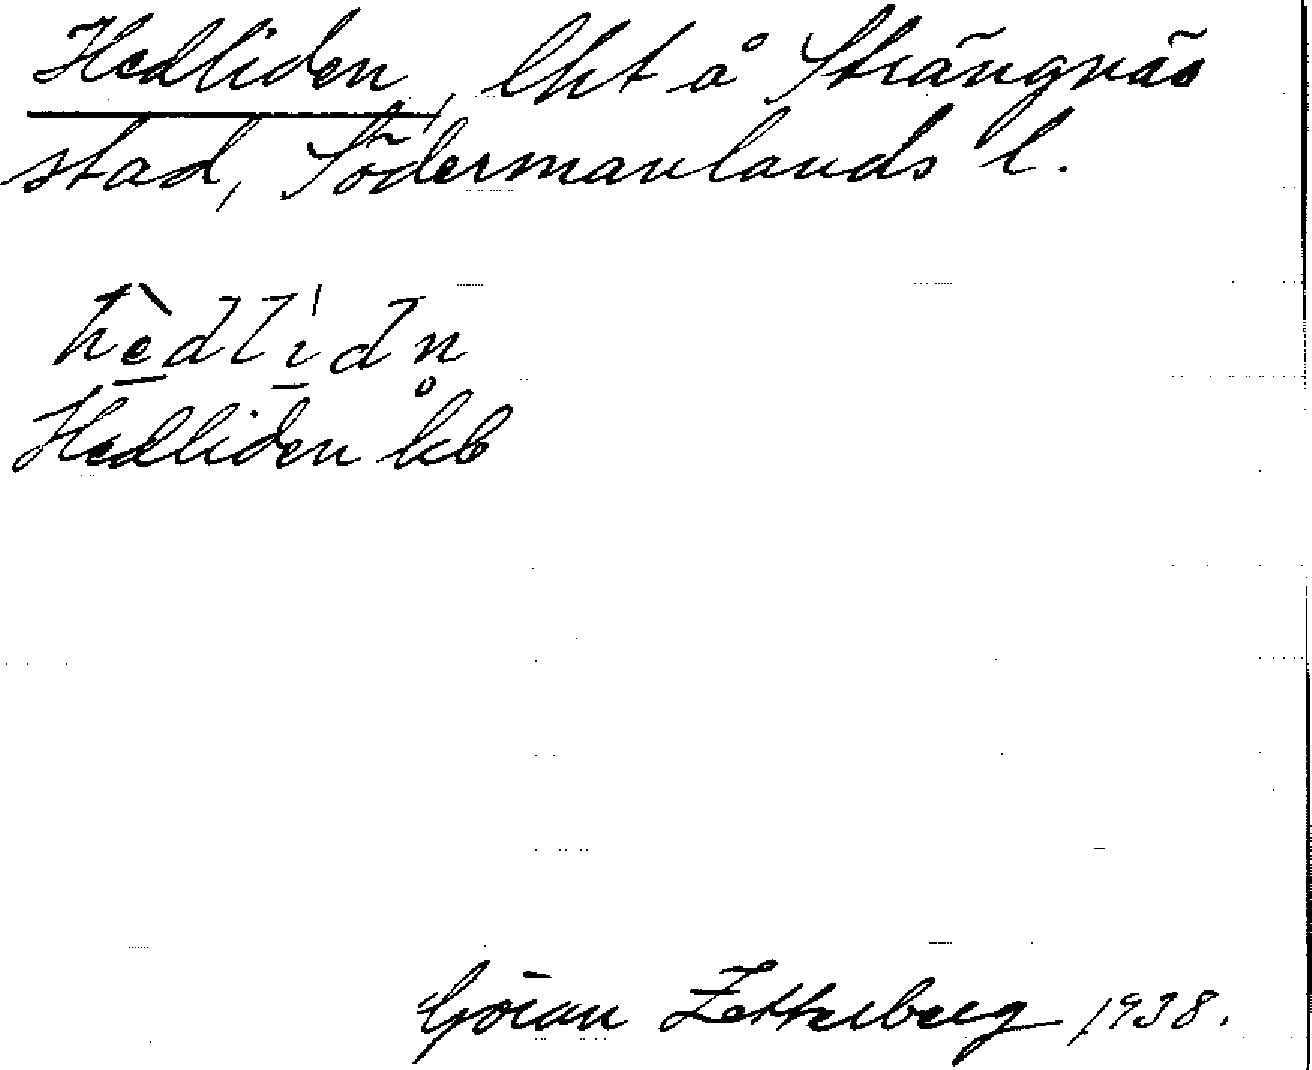 Hedliden, lht å Strängnäs
stad, Södermanlands l.
hèdlídn̥
Hedliden kb
Göran Zetterberg 1938.